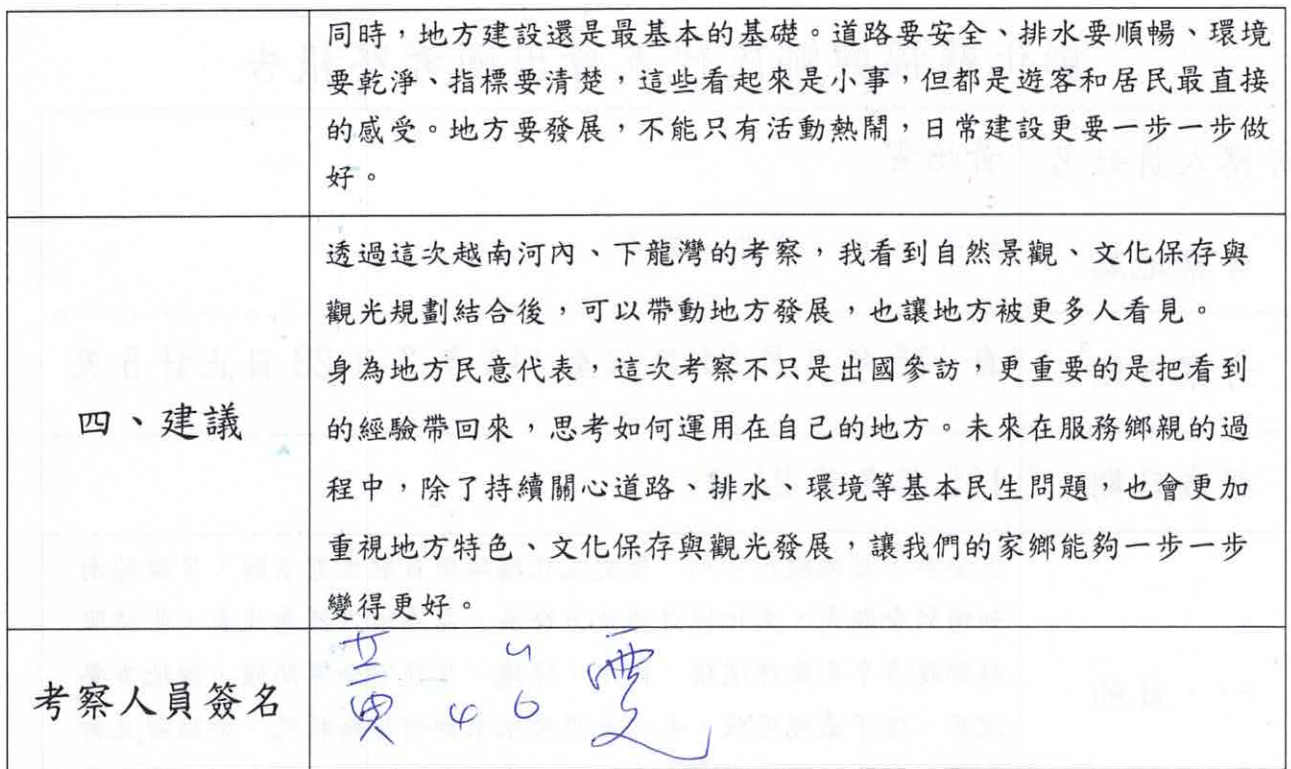 同時，地方建設還是最基本的基礎。道路要安全、排水要順暢、環境
要乾淨、指標要清楚，這些看起來是小事，但都是遊客和居民最直接
的感受。地方要發展，不能只有活動熱鬧，日常建設更要一步一步做
好。
四、建議
透過這次越南河內、下龍灣的考察，我看到自然景觀、文化保存與
觀光規劃結合後，可以帶動地方發展，也讓地方被更多人看見。
身為地方民意代表，這次考察不只是出國參訪，更重要的是把看到
的經驗帶回來，思考如何運用在自己的地方。未來在服務鄉親的過
程中，除了持續關心道路、排水、環境等基本民生問題，也會更加
重視地方特色、文化保存與觀光發展，讓我們的家鄉能夠一步一步
變得更好。
考察人員簽名
黃